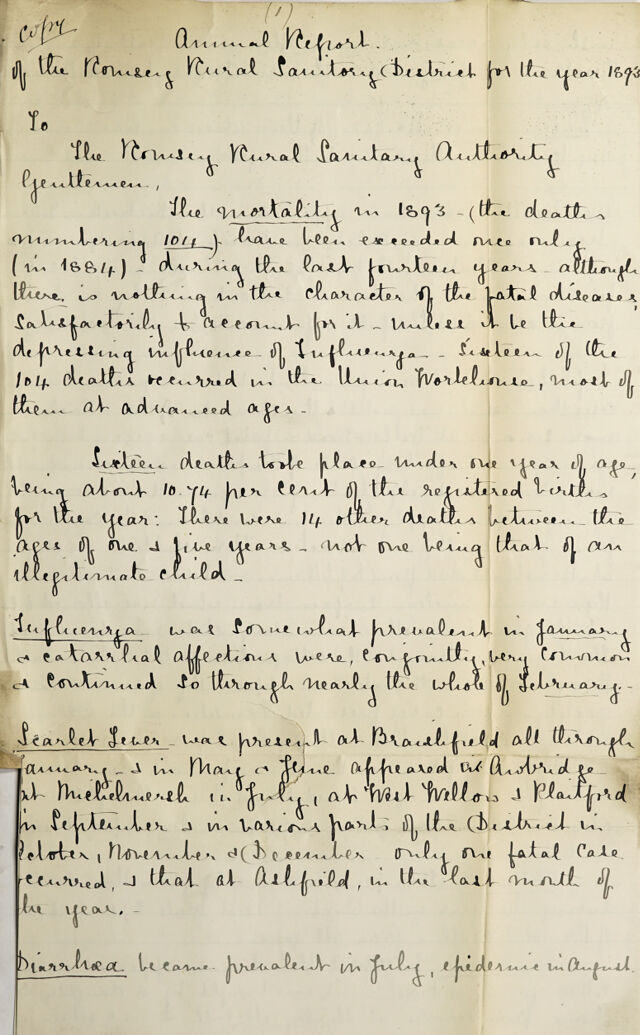 (1)
Copy
Annual Report.
of the Romsey Rural Sanitary District for the year 1893
To
The Romsey Rural Sanitary Authority
Gentlemen,
The mortality in 1893 - (the deaths
numbering 104) - have been exceeded once only
(in 1884) - during the last fourteen years - although
there is nothing in the character of the fatal diseases,
satisfactorily to account for it - unless it be the
depressing influence of Influenza - Sixteen of the
104 deaths occurred in the Union Workhouse, most of
them at advanced ages -
Sixteen deaths took place under one year of age,
being about 10.74 per cent of the registered births
for the year: There were 14 other deaths between the
ages of one & five years - not one being that of an
illegitimate child -
Influenza was somewhat prevalent in January
& catarrhal affections were, conjointly, very common
& continued so through nearly the whole of February -
Scarlet Fever - was present at Braishfield all through
January - & in May & June appeared at Awbridge
at Michelmersh in July, at West Wellow & Plaitford
in September & in various parts of the District in
October, November & December - only one fatal case
occurred, & that at Ashfield, in the last month of
the year. -
Diarrhœa became prevalent in July, epidemic in August